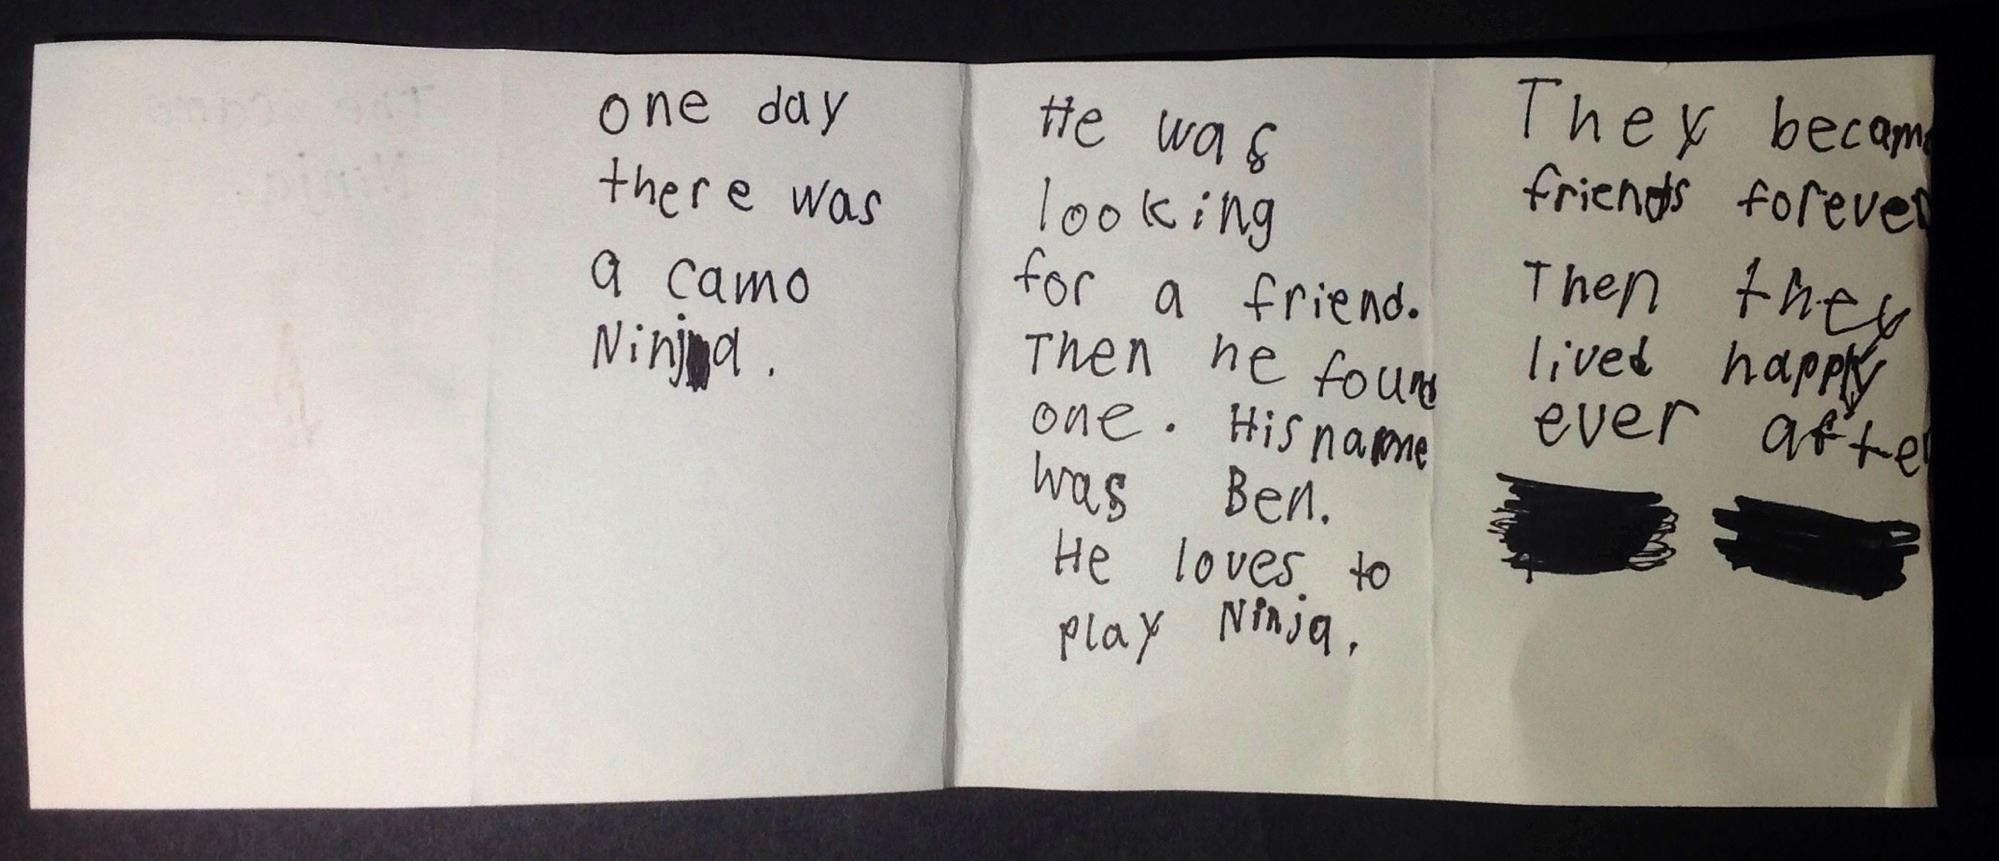 one day
there was
a camo
Ninja.
He was
looking
for a friend.
Then he found
one. His name
was Ben.
He loves to
play Ninja.
They became
friends forever
Then they
lived happy
ever after